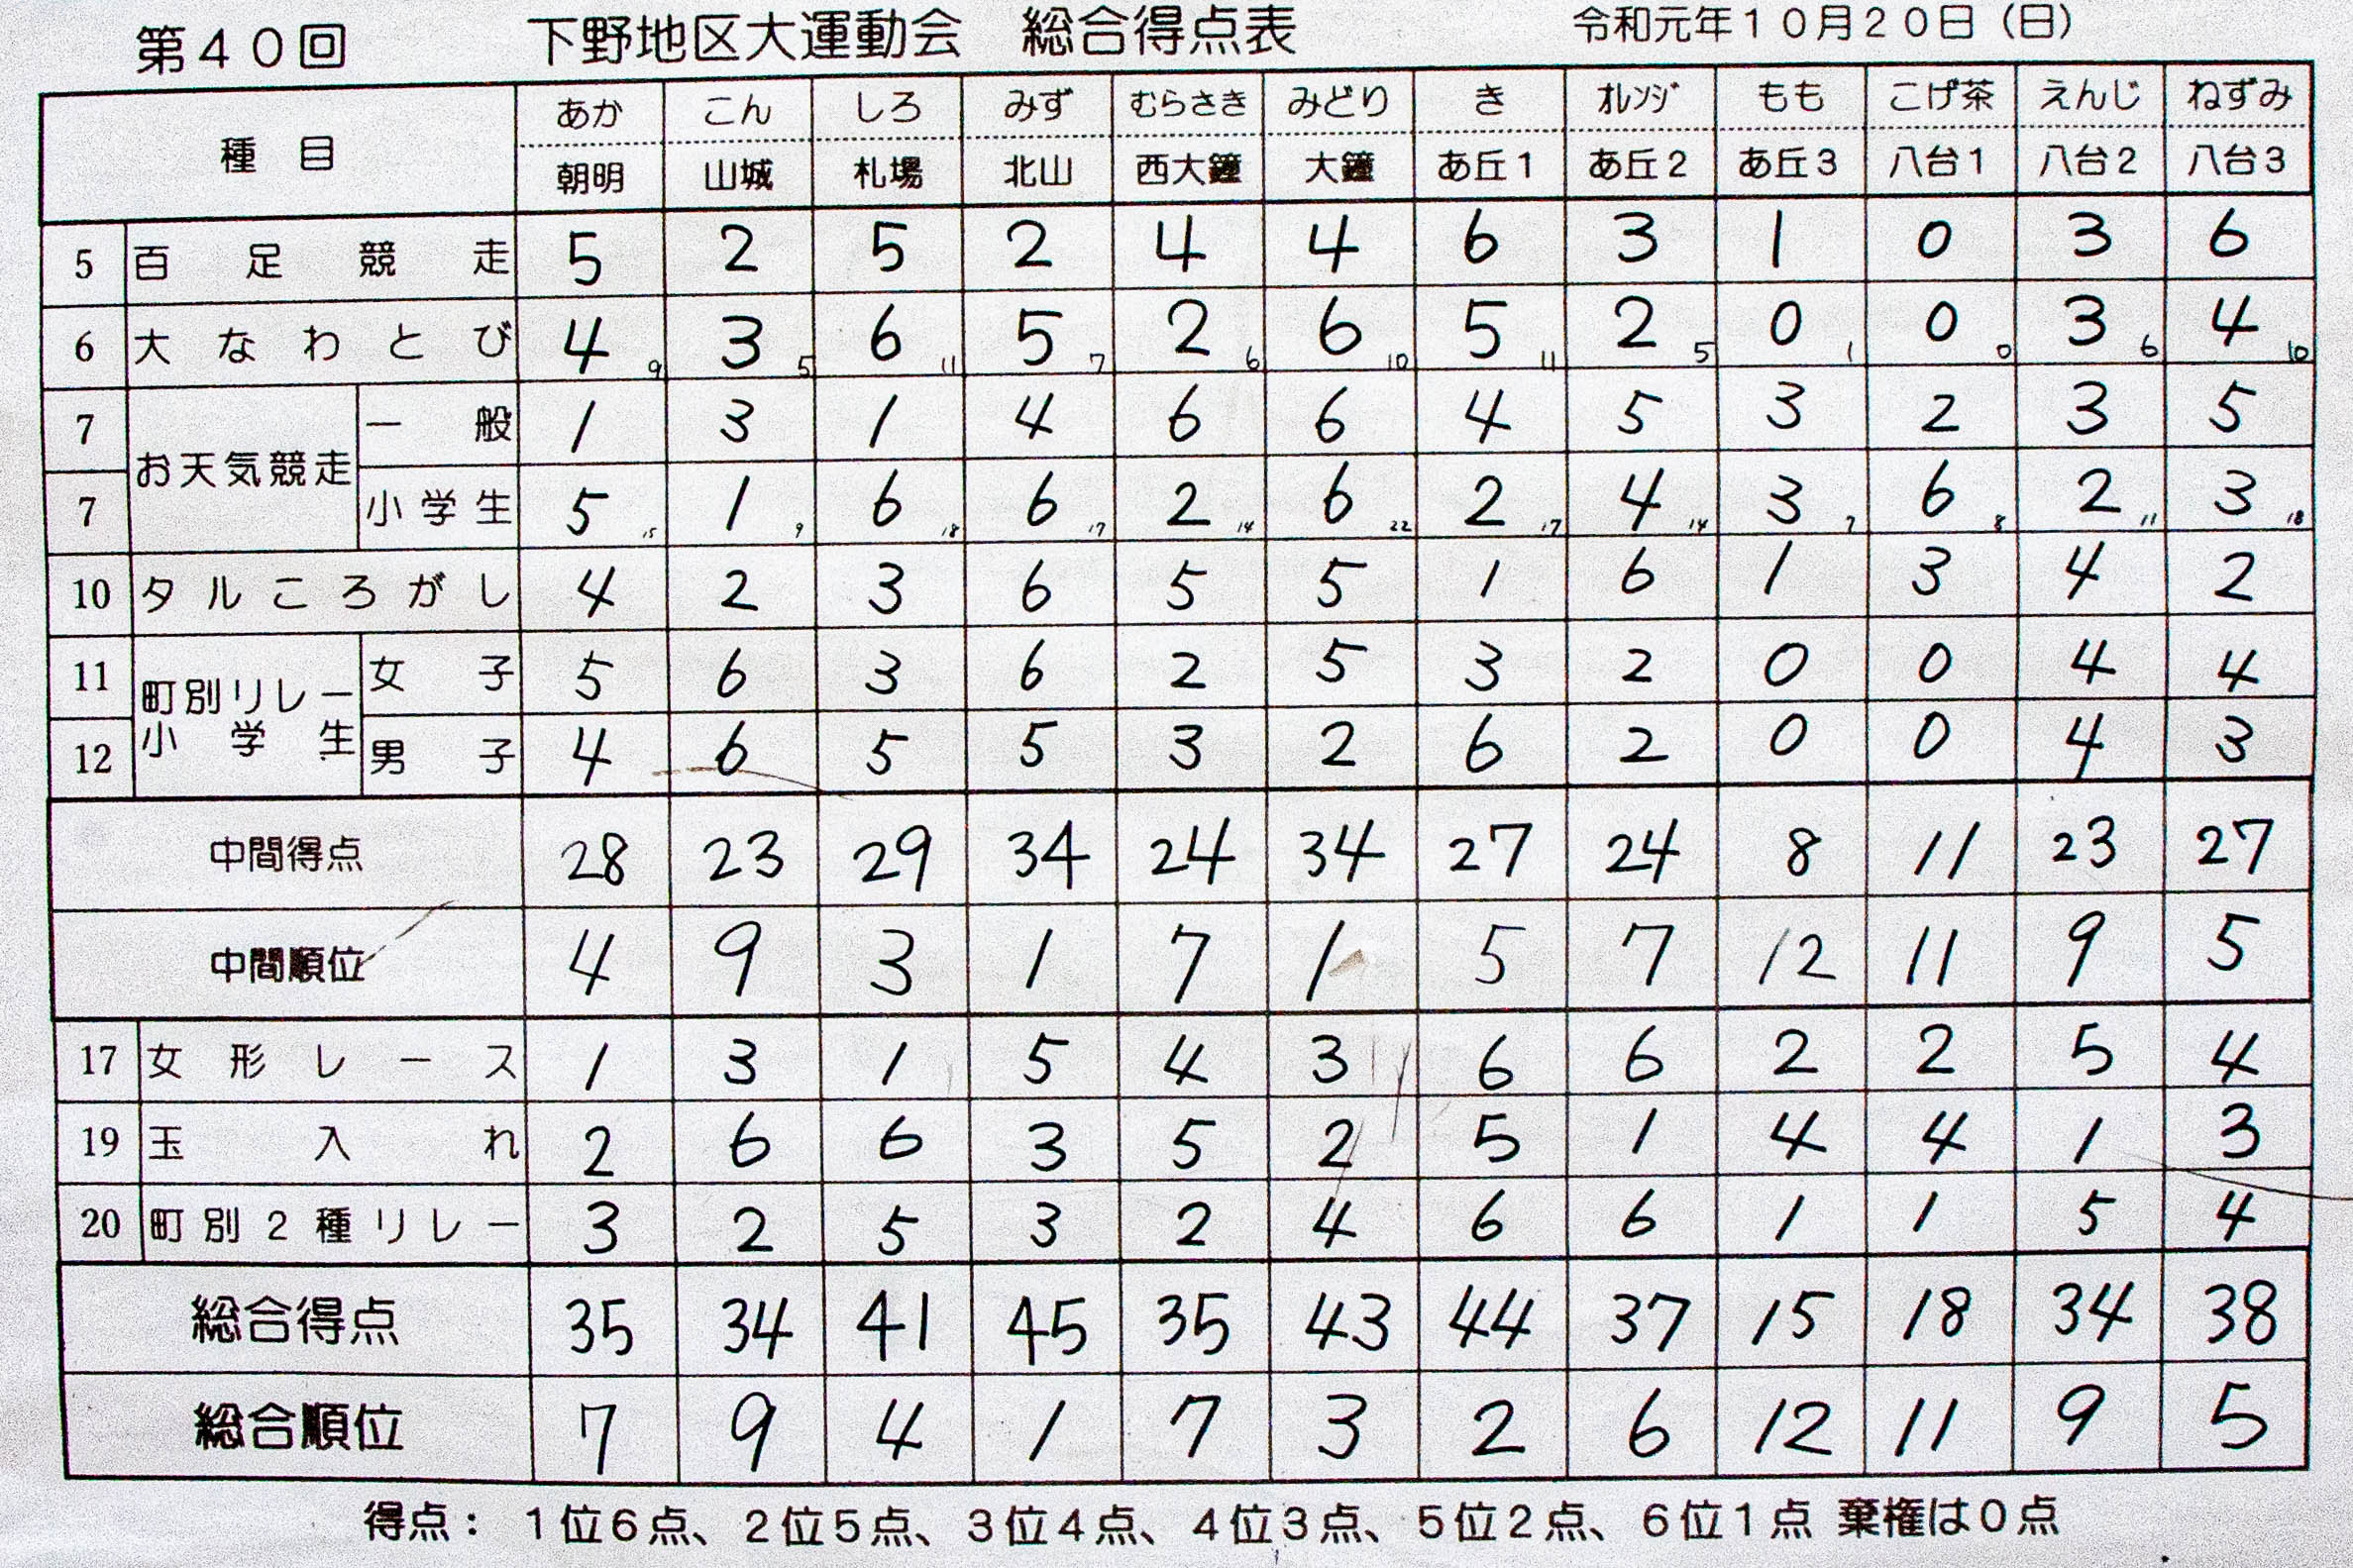 第40回 下野地区大運動会 総合得点表 令和元年10月20日(日)
種目 あか こん しろ みず むらさき みどり き オレンジ もも こげ茶 えんじ ねずみ
朝明 山城 札場 北山 西大鐘 大鐘 あ丘1 あ丘2 あ丘3 八台1 八台2 八台3
5 百足競走 5 2 5 2 4 4 6 3 1 0 3 6
6 大なわとび 4 3 6 5 2 6 5 2 0 0 3 4
9 5 11 7 6 10 11 5 1 0 6 10
7 お天気競走 一般 1 3 1 4 6 6 4 5 3 2 3 5
7 小学生 5 1 6 6 2 6 2 4 3 6 2 3
15 9 18 17 14 22 17 14 7 8 11 18
10 タルころがし 4 2 3 6 5 5 1 6 1 3 4 2
11 町別リレー小学生 女子 5 6 3 6 2 5 3 2 0 0 4 4
12 男子 4 6 5 5 3 2 6 2 0 0 4 3
中間得点 28 23 29 34 24 34 27 24 8 11 23 27
中間順位 4 9 3 1 7 1 5 7 12 11 9 5
17 女形レース 1 3 1 5 4 3 6 6 2 2 5 4
19 玉入れ 2 6 6 3 5 2 5 1 4 4 1 3
20 町別2種リレー 3 2 5 3 2 4 6 6 1 1 5 4
総合得点 35 34 41 45 35 43 44 37 15 18 34 38
総合順位 7 9 4 1 7 3 2 6 12 11 9 5
得点: 1位6点、2位5点、3位4点、4位3点、5位2点、6位1点 棄権は0点